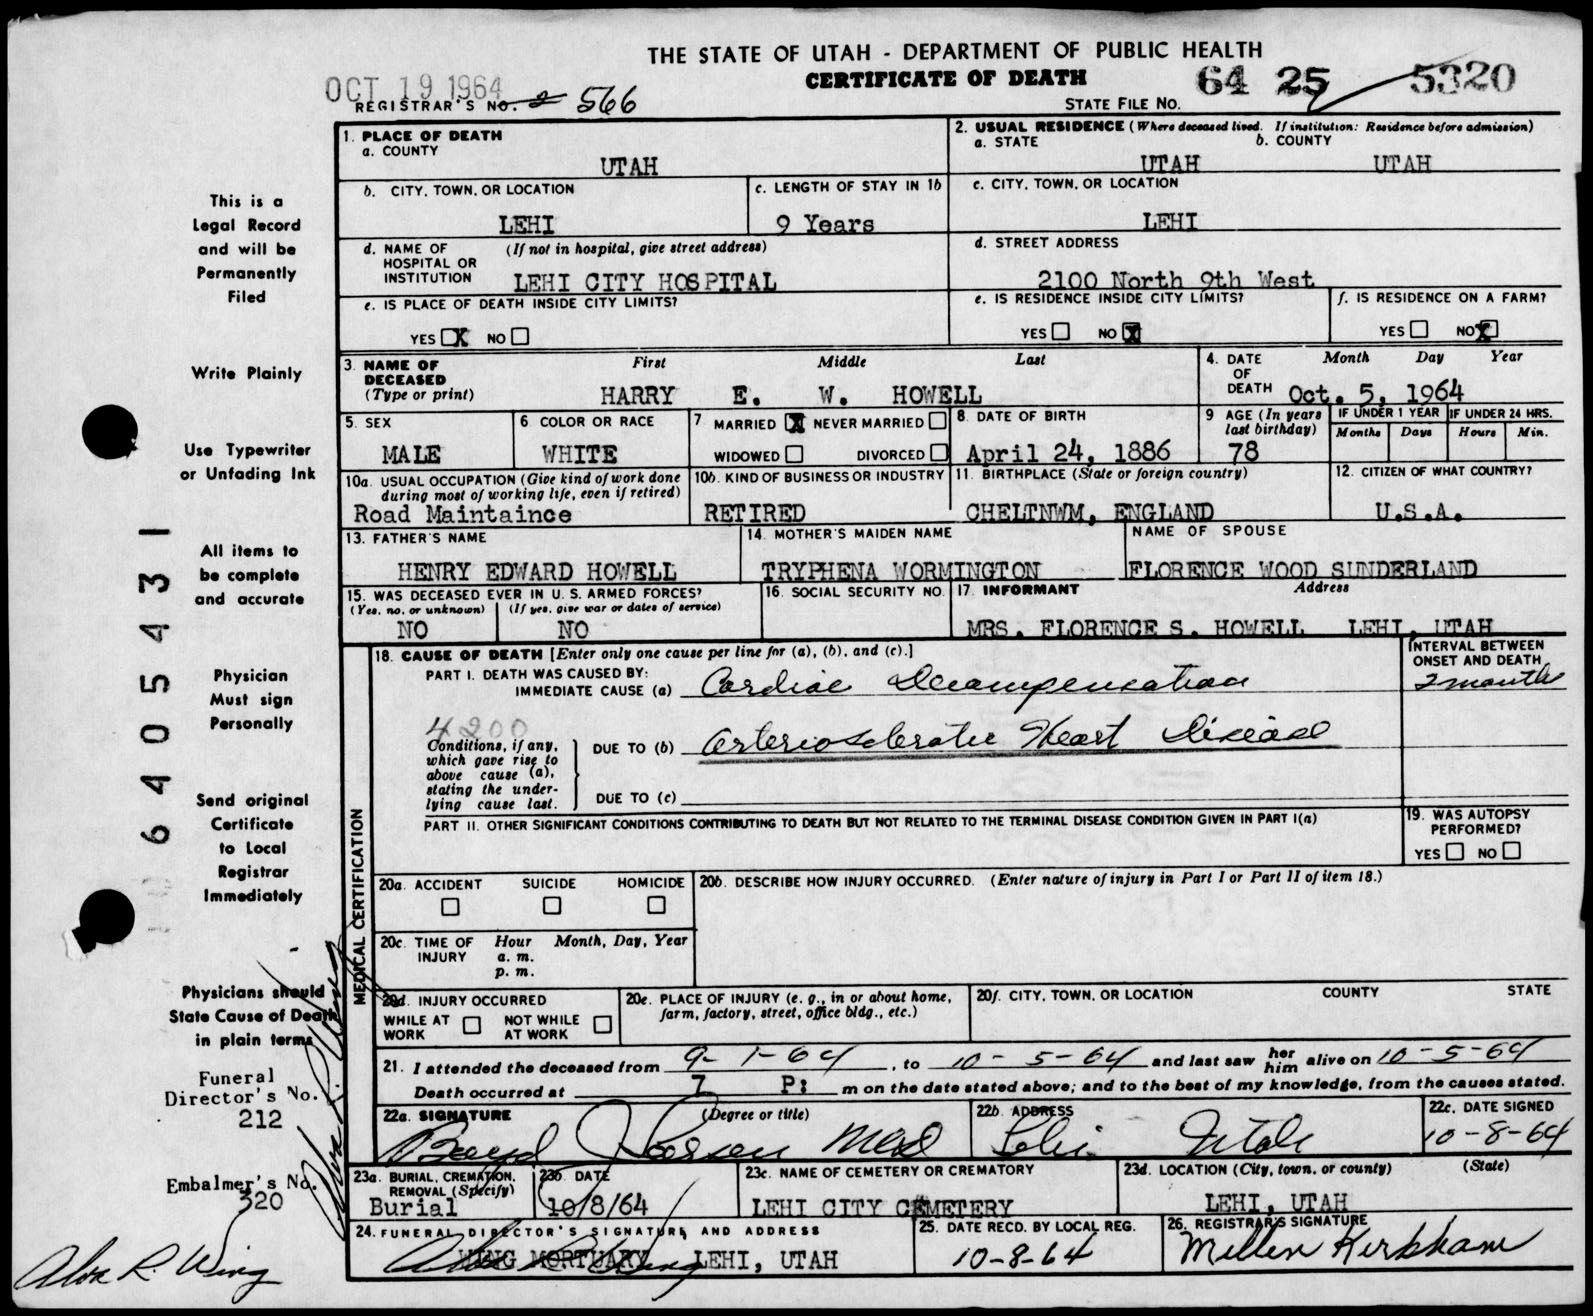 THE STATE OF UTAH - DEPARTMENT OF PUBLIC HEALTH
CERTIFICATE OF DEATH
OCT 19 1964
REGISTRAR'S NO. 2 566
STATE FILE NO. 64 25 5320
1. PLACE OF DEATH
a. COUNTY
UTAH
2. USUAL RESIDENCE (Where deceased lived. If institution: Residence before admission)
a. STATE b. COUNTY
UTAH UTAH
b. CITY, TOWN, OR LOCATION
LEHI
c. LENGTH OF STAY IN 1b
9 Years
c. CITY, TOWN, OR LOCATION
LEHI
d. NAME OF HOSPITAL OR INSTITUTION (If not in hospital, give street address)
LEHI CITY HOSPITAL
d. STREET ADDRESS
2100 North 9th West
e. IS PLACE OF DEATH INSIDE CITY LIMITS?
YES X NO
e. IS RESIDENCE INSIDE CITY LIMITS?
YES NO X
f. IS RESIDENCE ON A FARM?
YES NO X
3. NAME OF DECEASED (Type or print)
First Middle Last
HARRY E. W. HOWELL
4. DATE OF DEATH
Month Day Year
Oct. 5, 1964
5. SEX
MALE
6. COLOR OR RACE
WHITE
7. MARRIED X NEVER MARRIED
WIDOWED DIVORCED
8. DATE OF BIRTH
April 24, 1886
9 AGE (In years last birthday)
78
IF UNDER 1 YEAR
Months Days
IF UNDER 24 HRS.
Hours Min.
10a. USUAL OCCUPATION (Give kind of work done during most of working life, even if retired)
Road Maintaince
10b. KIND OF BUSINESS OR INDUSTRY
RETIRED
11. BIRTHPLACE (State or foreign country)
CHELTNWM, ENGLAND
12. CITIZEN OF WHAT COUNTRY?
U.S.A.
13. FATHER'S NAME
HENRY EDWARD HOWELL
14. MOTHER'S MAIDEN NAME
TRYPHENA WORMINGTON
NAME OF SPOUSE
FLORENCE WOOD SUNDERLAND
15. WAS DECEASED EVER IN U. S. ARMED FORCES?
(Yes, no, or unknown) (If yes, give war or dates of service)
NO NO
16. SOCIAL SECURITY NO.
17. INFORMANT Address
MRS. FLORENCE S. HOWELL LEHI, UTAH
MEDICAL CERTIFICATION
18. CAUSE OF DEATH [Enter only one cause per line for (a), (b), and (c).]
INTERVAL BETWEEN ONSET AND DEATH
PART I. DEATH WAS CAUSED BY:
IMMEDIATE CAUSE (a) Cardiac Decompensation
2 months
4200
Conditions, if any, which gave rise to above cause (a), stating the underlying cause last.
DUE TO (b) Arteriosclerotic Heart Disease
DUE TO (c)
PART II. OTHER SIGNIFICANT CONDITIONS CONTRIBUTING TO DEATH BUT NOT RELATED TO THE TERMINAL DISEASE CONDITION GIVEN IN PART I(a)
19. WAS AUTOPSY PERFORMED?
YES NO
20a. ACCIDENT SUICIDE HOMICIDE
20b. DESCRIBE HOW INJURY OCCURRED. (Enter nature of injury in Part I or Part II of item 18.)
20c. TIME OF INJURY Hour Month, Day, Year
a. m.
p. m.
20d. INJURY OCCURRED
WHILE AT WORK NOT WHILE AT WORK
20e. PLACE OF INJURY (e. g., in or about home, farm, factory, street, office bldg., etc.)
20f. CITY, TOWN, OR LOCATION COUNTY STATE
21. I attended the deceased from 9-1-64, to 10-5-64 and last saw her him alive on 10-5-64
Death occurred at 7 P: m on the date stated above; and to the best of my knowledge, from the causes stated.
22a. SIGNATURE (Degree or title)
Boyd J Larsen MD
22b. ADDRESS
Lehi Utah
22c. DATE SIGNED
10-8-64
23a. BURIAL, CREMATION, REMOVAL (Specify)
Burial
23b DATE
10/8/64
23c. NAME OF CEMETERY OR CREMATORY
LEHI CITY CEMETERY
23d. LOCATION (City, town, or county) (State)
LEHI, UTAH
24. FUNERAL DIRECTOR'S SIGNATURE AND ADDRESS
WING MORTUARY LEHI, UTAH
25. DATE RECD. BY LOCAL REG.
10-8-64
26. REGISTRAR'S SIGNATURE
Millen Kirkham
This is a
Legal Record
and will be
Permanently
Filed
Write Plainly
Use Typewriter
or Unfading Ink
All items to
be complete
and accurate
Physician
Must sign
Personally
Send original
Certificate
to Local
Registrar
Immediately
Physicians should
State Cause of Death
in plain terms
Funeral
Director's No.
212
Embalmer's No.
320
Alva R. Wing
6405431